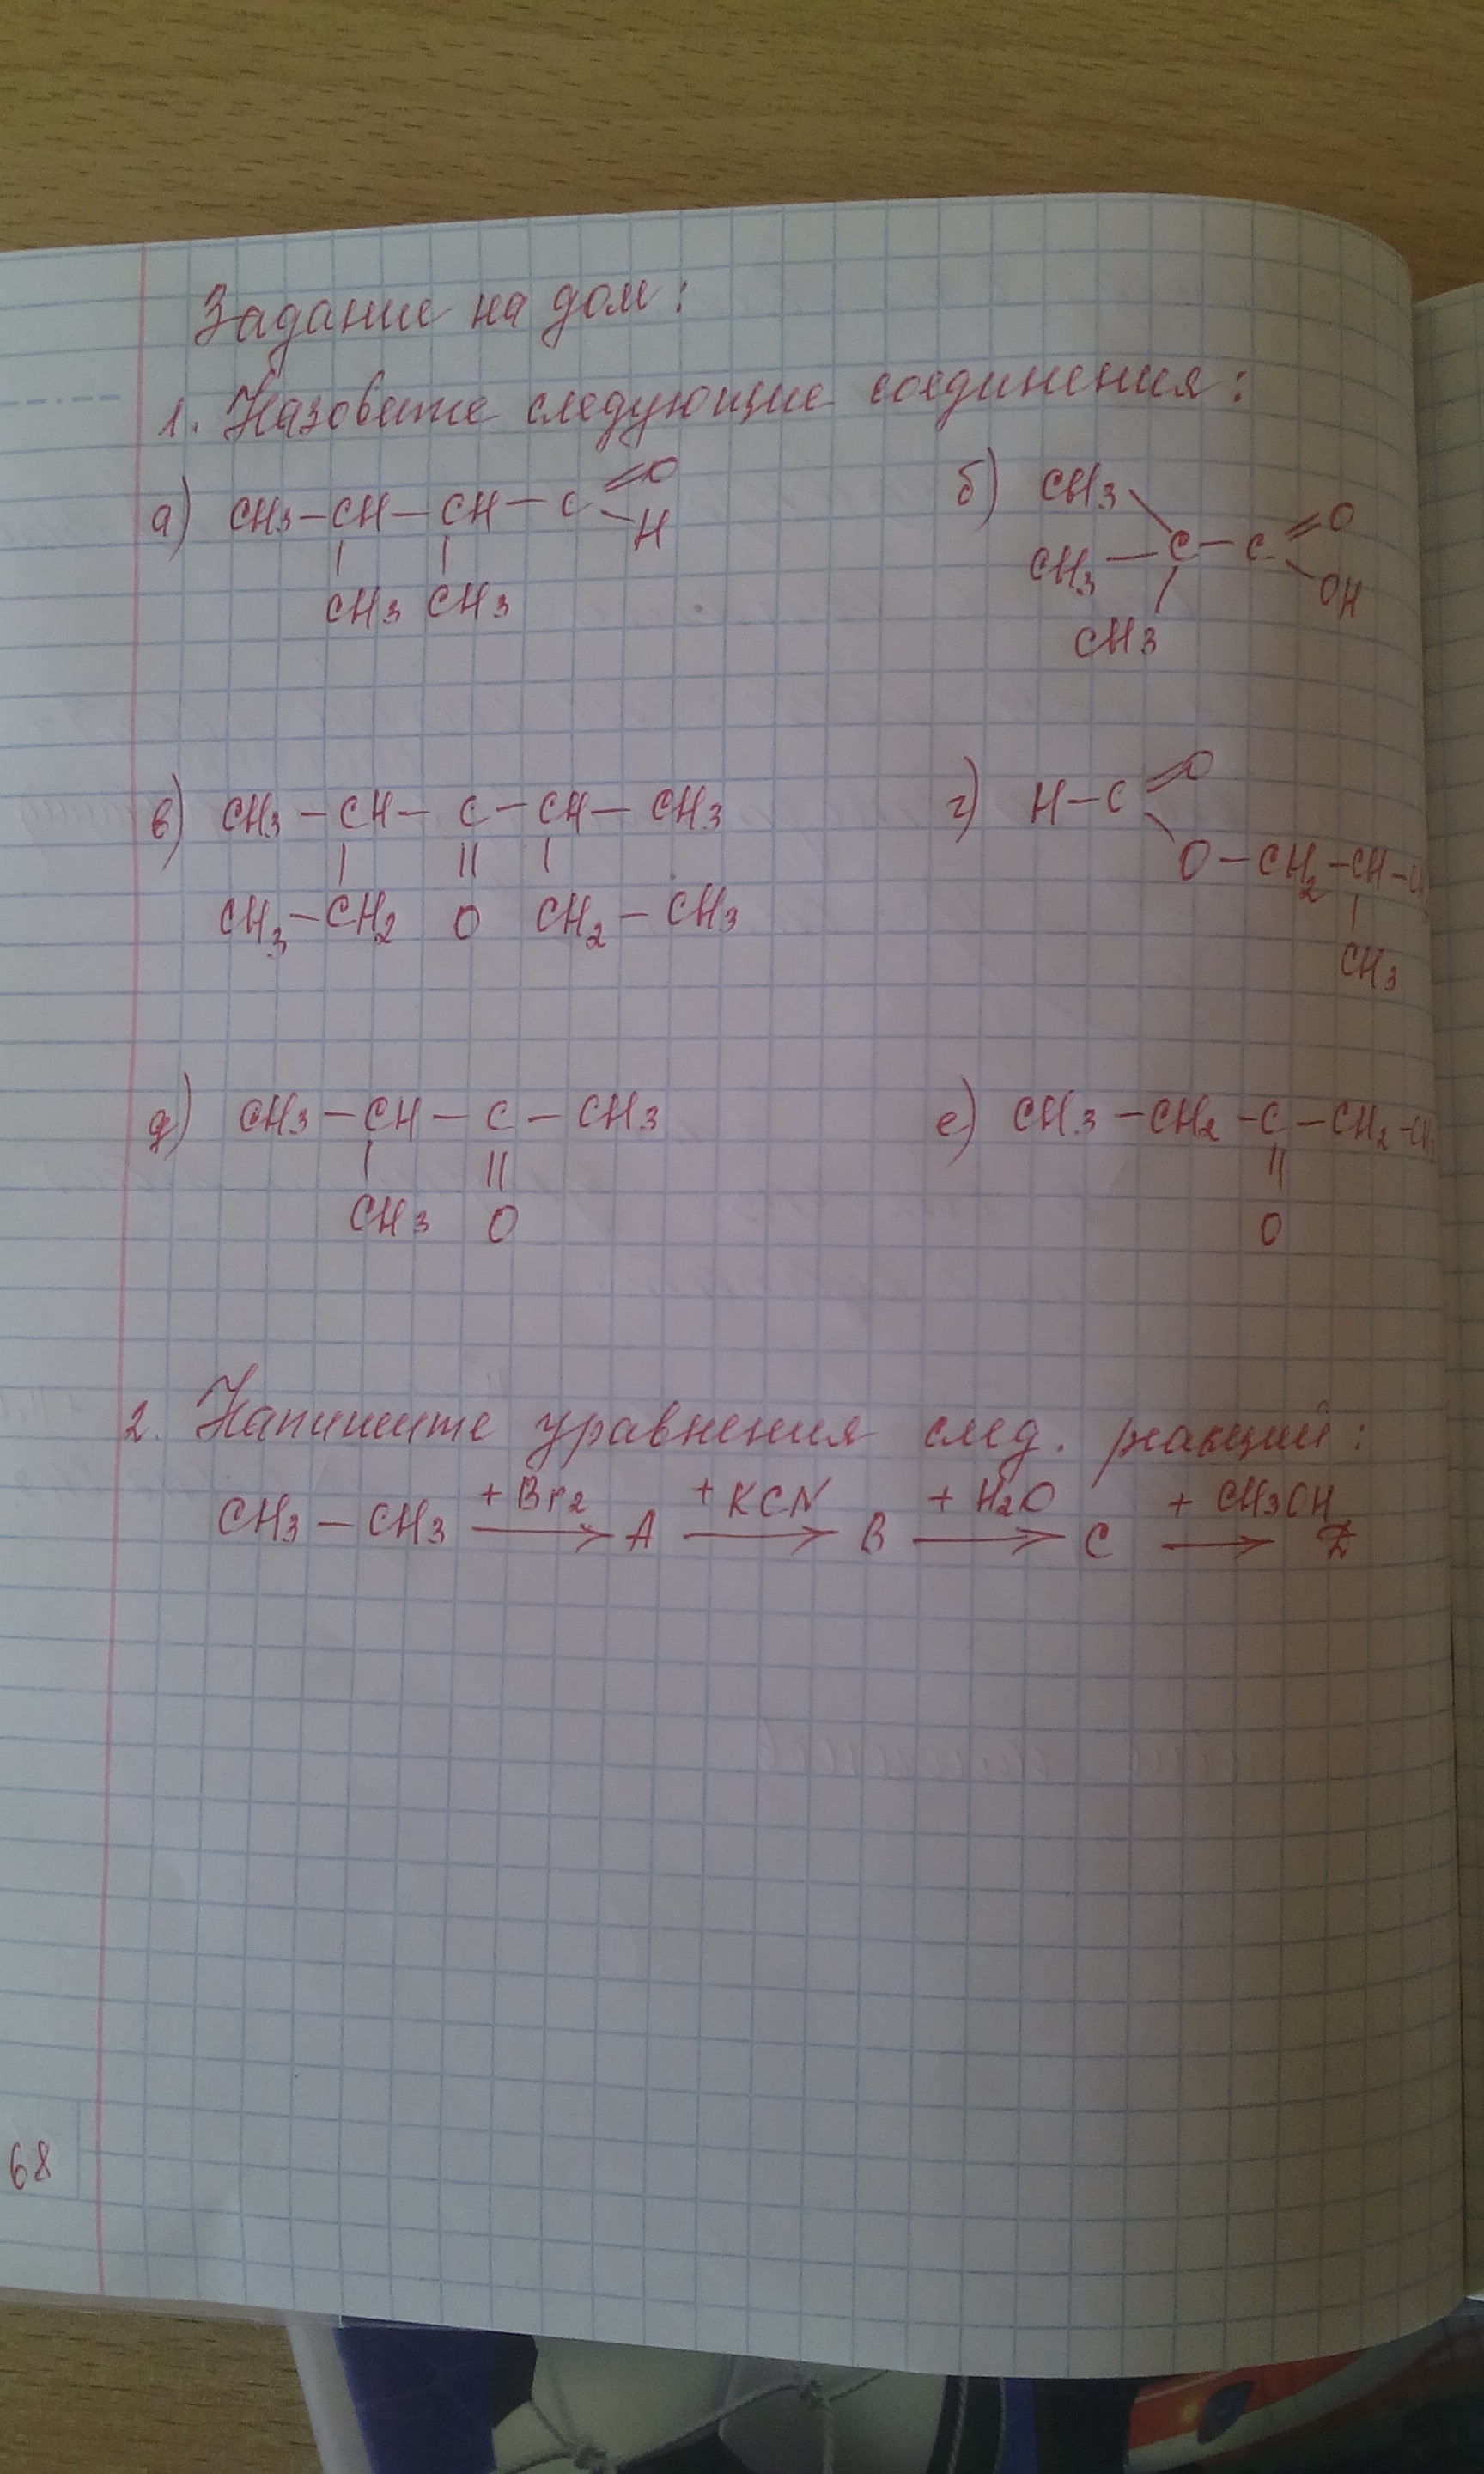 Задание на дом:
1. Назовите следующие соединения:
а) CH3–CH–CH–C=O
–H
CH3 CH3
б) CH3
CH3–C–C=O
–OH
CH3
в) CH3–CH–C–CH–CH3
|| 
CH3–CH2 O CH2–CH3
г) H–C=O
O–CH2–CH–
CH3
д) CH3–CH–C–CH3
||
CH3 O
е) CH3–CH2–C–CH2–CH
||
O
2. Напишите уравнения след. реакций:
+Br2 +KCN +H2O +CH3OH
CH3–CH3 → A → B → C →
68